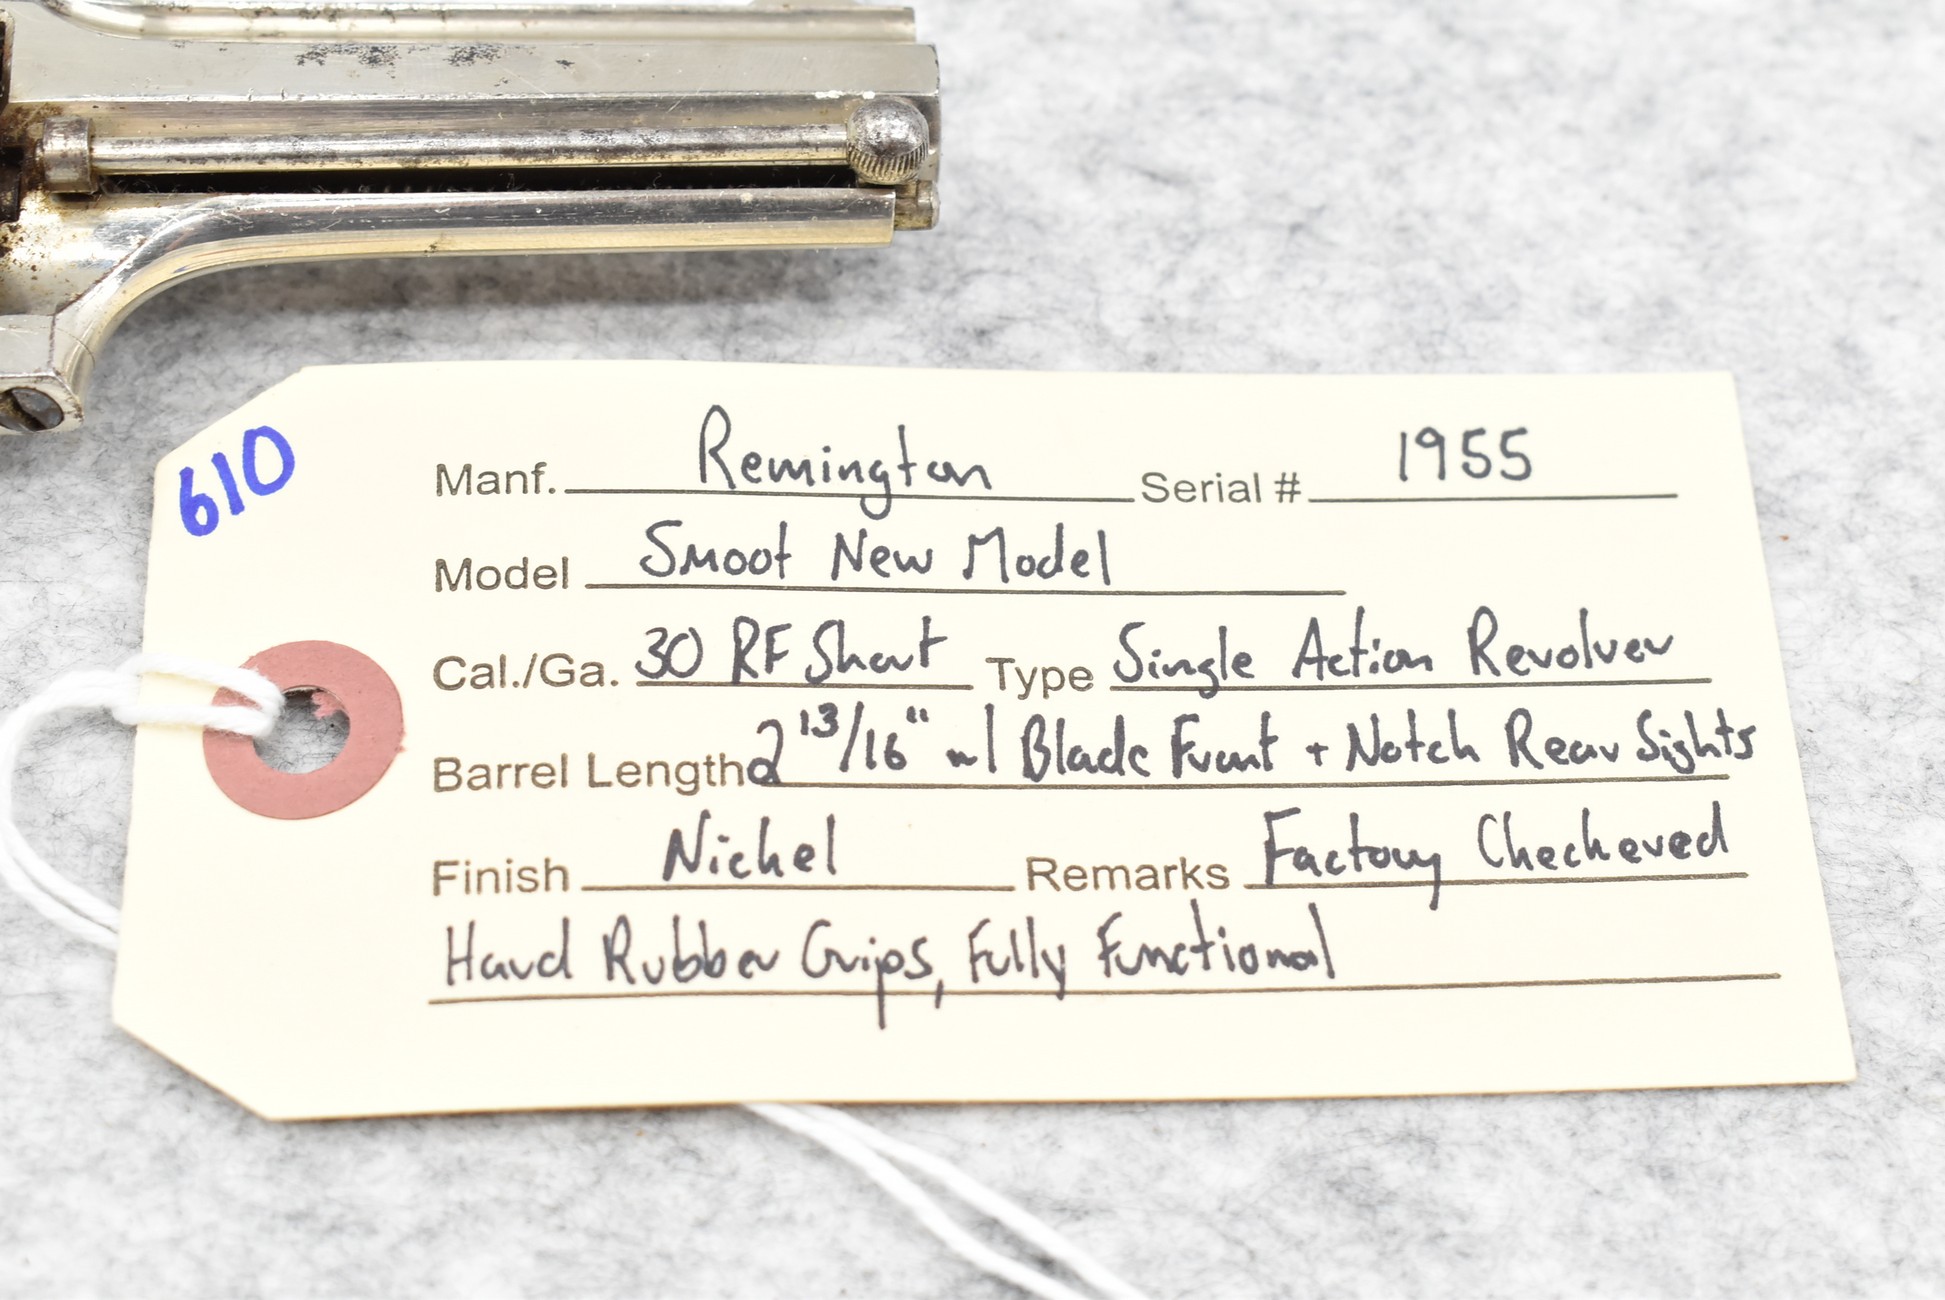 610
Manf. Remington Serial # 1955
Model Smoot New Model
Cal./Ga. 30 RF Short Type Single Action Revolver
Barrel Length 2 13/16" w/ Blade Front + Notch Rear Sights
Finish Nickel Remarks Factory Checkered
Hard Rubber Grips, Fully Functional